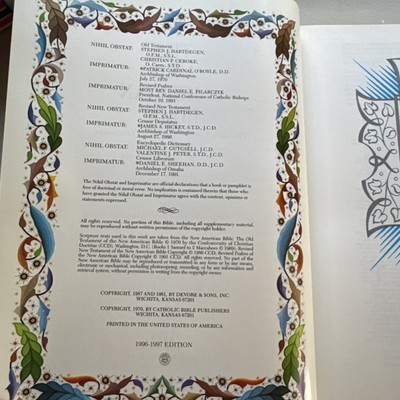 NIHIL OBSTAT: Old Testament
STEPHEN J. HARTDEGEN,
O.F.M., S.S.L.
CHRISTIAN P. CEROKE,
O. Carm., S.T.D.
IMPRIMATUR: PATRICK CARDINAL O'BOYLE, D.D.
Archbishop of Washington
July 27, 1970
Revised Psalms
IMPRIMATUR: MOST REV. DANIEL E. PILARCZYK
President, National Conference of Catholic Bishops
October 10, 1991
Revised New Testament
NIHIL OBSTAT: STEPHEN J. HARTDEGEN,
O.F.M., S.S.L.
Censor Deputatus
IMPRIMATUR: JAMES A. HICKEY, S.T.D., J.C.D.
Archbishop of Washington
August 27, 1986
Encyclopedic Dictionary
NIHIL OBSTAT: MICHAEL F. GUTGSELL, J.C.D.
VALENTINE J. PETER, S.T.D., J.C.D.
Censor Librorum
IMPRIMATUR: DANIEL E. SHEEHAN, D.D., J.C.D.
Archbishop of Omaha
December 17, 1981.
The Nihil Obstat and Imprimatur are official declarations that a book or pamphlet is
free of doctrinal or moral error. No implication is contained therein that those who
have granted the Nihil Obstat and Imprimatur agree with the content, opinions or
statements expressed.
All rights reserved. No portion of this Bible, including all supplementary material,
may be reproduced without written permission of the copyright holder.
Scripture texts used in this work are taken from the New American Bible. The Old
Testament of the New American Bible © 1970 by the Confraternity of Christian
Doctrine (CCD), Washington, D.C. (Books 1 Samuel to 2 Maccabees © 1969); Revised
New Testament of the New American Bible Copyright © 1986 CCD; Revised Psalms of
the New American Bible Copyright © 1991 CCD. All rights reserved. No part of the
New American Bible may be reproduced or transmitted in any form or by any means,
electronic or mechanical, including photocopying, recording, or by any information and
retrieval system, without permission in writing from the copyright owner.
COPYRIGHT, 1987 AND 1981, BY DEVORE & SONS, INC.
WICHITA, KANSAS 67201
COPYRIGHT, 1970, BY CATHOLIC BIBLE PUBLISHERS
WICHITA, KANSAS 67201
PRINTED IN THE UNITED STATES OF AMERICA
1996-1997 EDITION